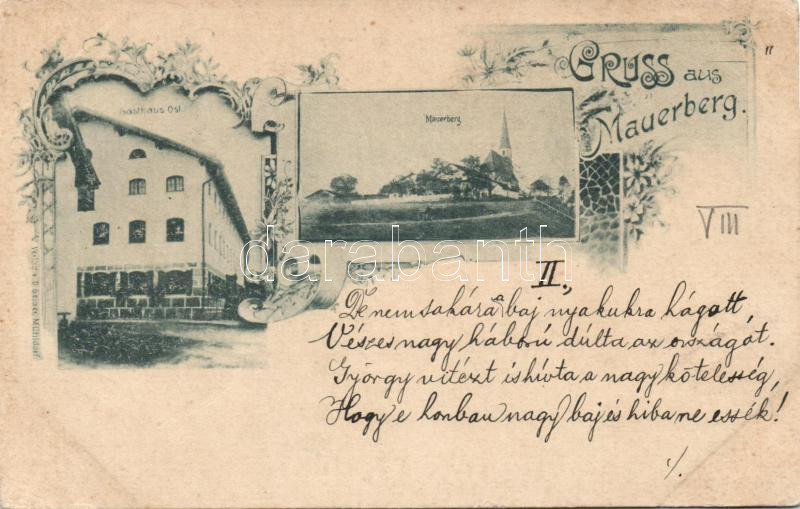 Gruss aus
Mauerberg.
Gasthaus Ost
Mauerberg
VIII
darabanth
II.,
De nemsokára a baj nyakukra hágott,
Vészes nagy háború dúlta az országot.
György vitézt is hívta a nagy kötelesség,
Hogy e honban nagy baj és hiba ne essék!